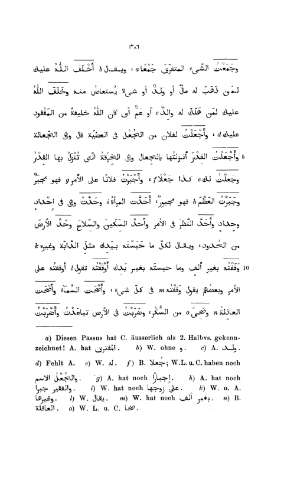 ١٣٦
وجَمَعْتُ الشىءَ المتفرّق جَمْعًا، ويـقـال أَخْلَفَ الـلّٰـهُ عليك
لمن ذهب له مال أو ولد أو شىء يُستعاض منه وخَلَفَ اللّٰهُ
عليك لمن هلك له والد أو عمّ أى كان اللّٰه خليفة من المفقود
عليك، وأَجْعَلْتُ لفلان من الجُعْل فى العطيّة قال وهى الجعالة
وأَجْعَلْتُ القِدْرَ أنزلتها بالجِعال وهى الخرقة التى تُنزل بها القدر ٥
وجعلتُ لك كذا جَعْلًا، وأَجْبَرْتُ فلانا على الأمر فهو مُجْبَر
وجَبَرْتُ العَظْمَ فهو مجبور، أَحَدَّتِ المرأةُ وحَدَّتْ وهى فى إحْداد
وحِداد وأَحَدَّ النَّظَرَ فى الأمر وأَحَدَّ السكّينَ والسلاحَ وحَدَّ الأرضَ
من الحدود، ويـقـال لكلّ ما حبسته بيـدك مثل الدابّة وغيرها
وَقَفْتُه بغير ألف وما حبسته بغير يدك أَوْقَفْتُه تقول أوقفته على ١٠
الأمر وبعضهم يقول وَقَفْتُه فى كلّ شىء، وأَصْحَتِ السماءُ وأَصْحَتِ
العاذلةُ وصَحِىَ من السُّكْر، وضَرَبْتُ فى الأرض تباعدتُ وأَضْرَبْتُ
a) Diesen Passus hat C. äusserlich als 2. Halbvs. gekenn-
zeichnet! A. hat المفترق. b) W. ohne و. c) A. ولـد.
d) Fehlt A. e) W. له. f) B. جعلا; W. L. u. C. haben noch
والجُعْل الاسم. g) A. hat noch إجبارًا. h) A. hat noch
والفقير جبرا. i) A. hat noch على زوجها. k) W. u. A.
وغيرها. l) W. يقال. m) A. hat noch بغير ألف. n) B.
العاقلة. o) W. L. u. C. صحا.